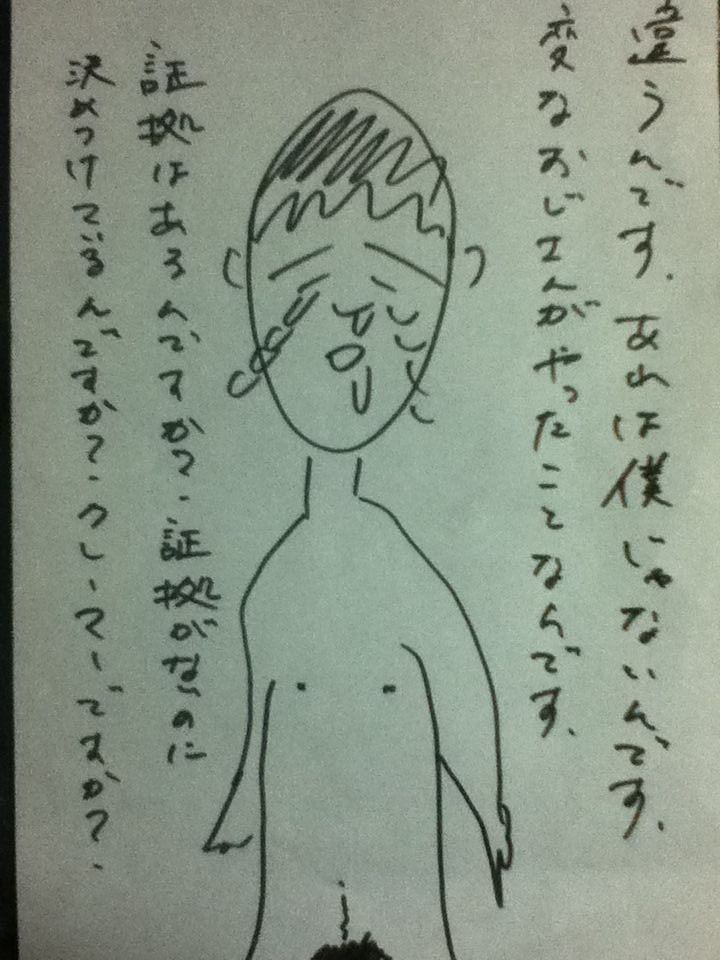 違うんです。あれは僕じゃないんです。
変なおじさんがやったことなんです。
証拠はあるんですか?。証拠がないのに
決めつけているんですか?。クレーマーですか?。